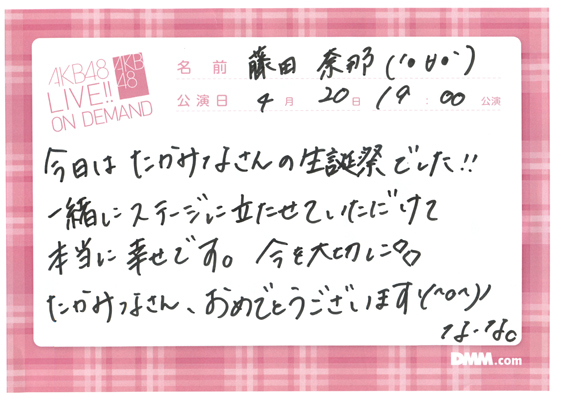 AKB48
LIVE!!
ON DEMAND
AKB
48
名前 藤田 奈那 ('o'∀'o')
公演日 4月 20日 19:00 公演
今日は たかみなさんの生誕祭でした!!
一緒にステージに立たせていただけて
本当に幸せです。今を大切に
たかみなさん、おめでとうございます\(^o^)/
なーな。
DMM.com